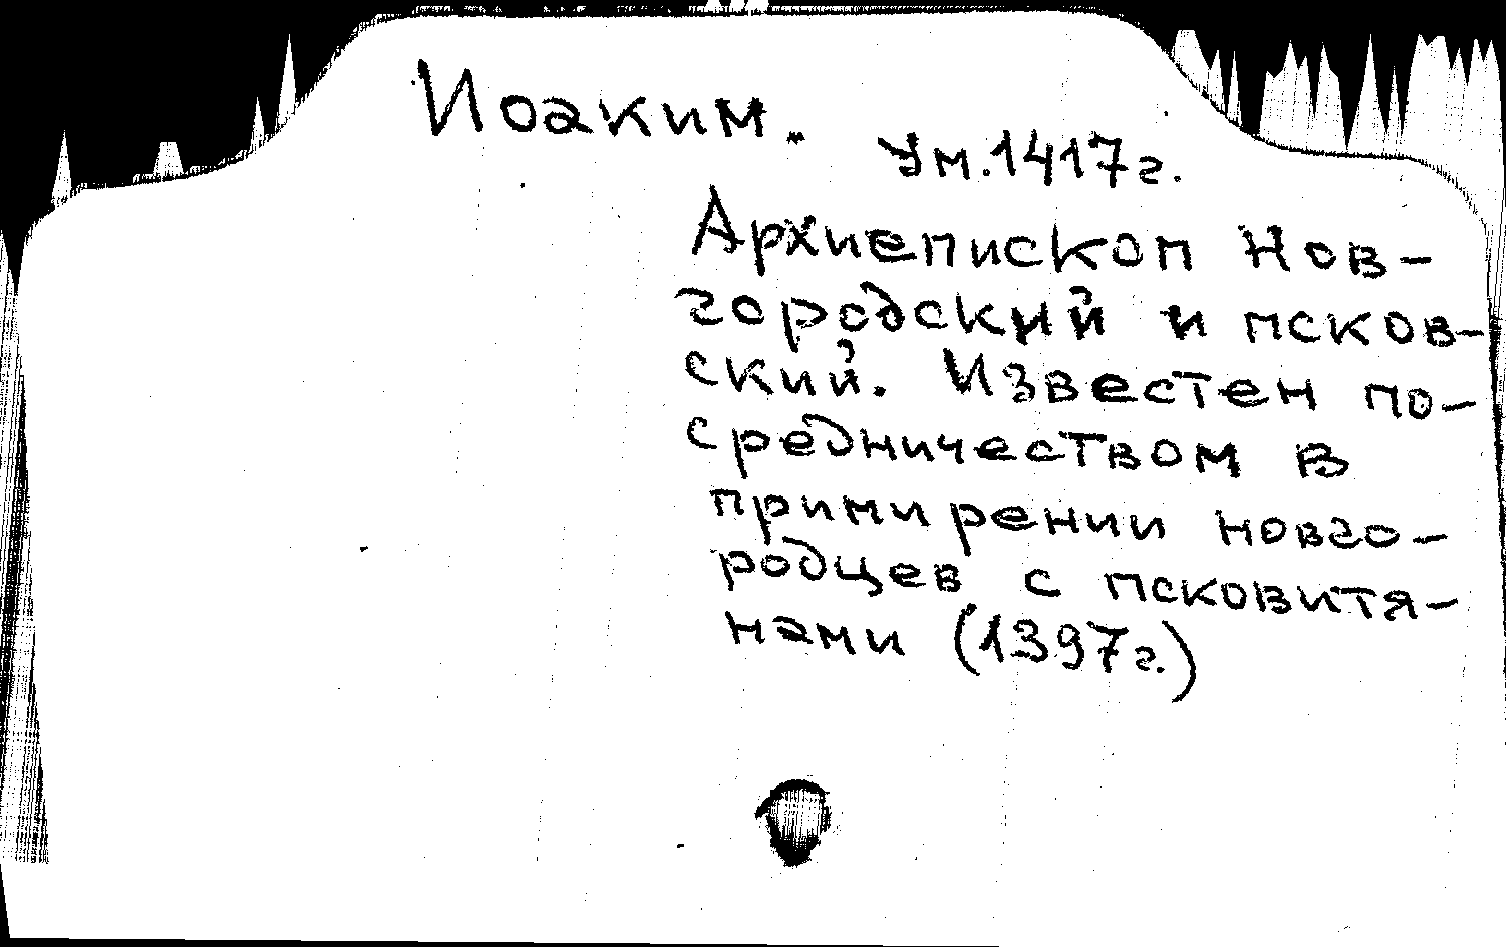 Иоаким.
Ум. 1417г.
Архиепископ Нов-
городский и псков-
ский. Известен по-
средничеством в
примирении новго-
родцев с псковитя-
нами (1397г.)